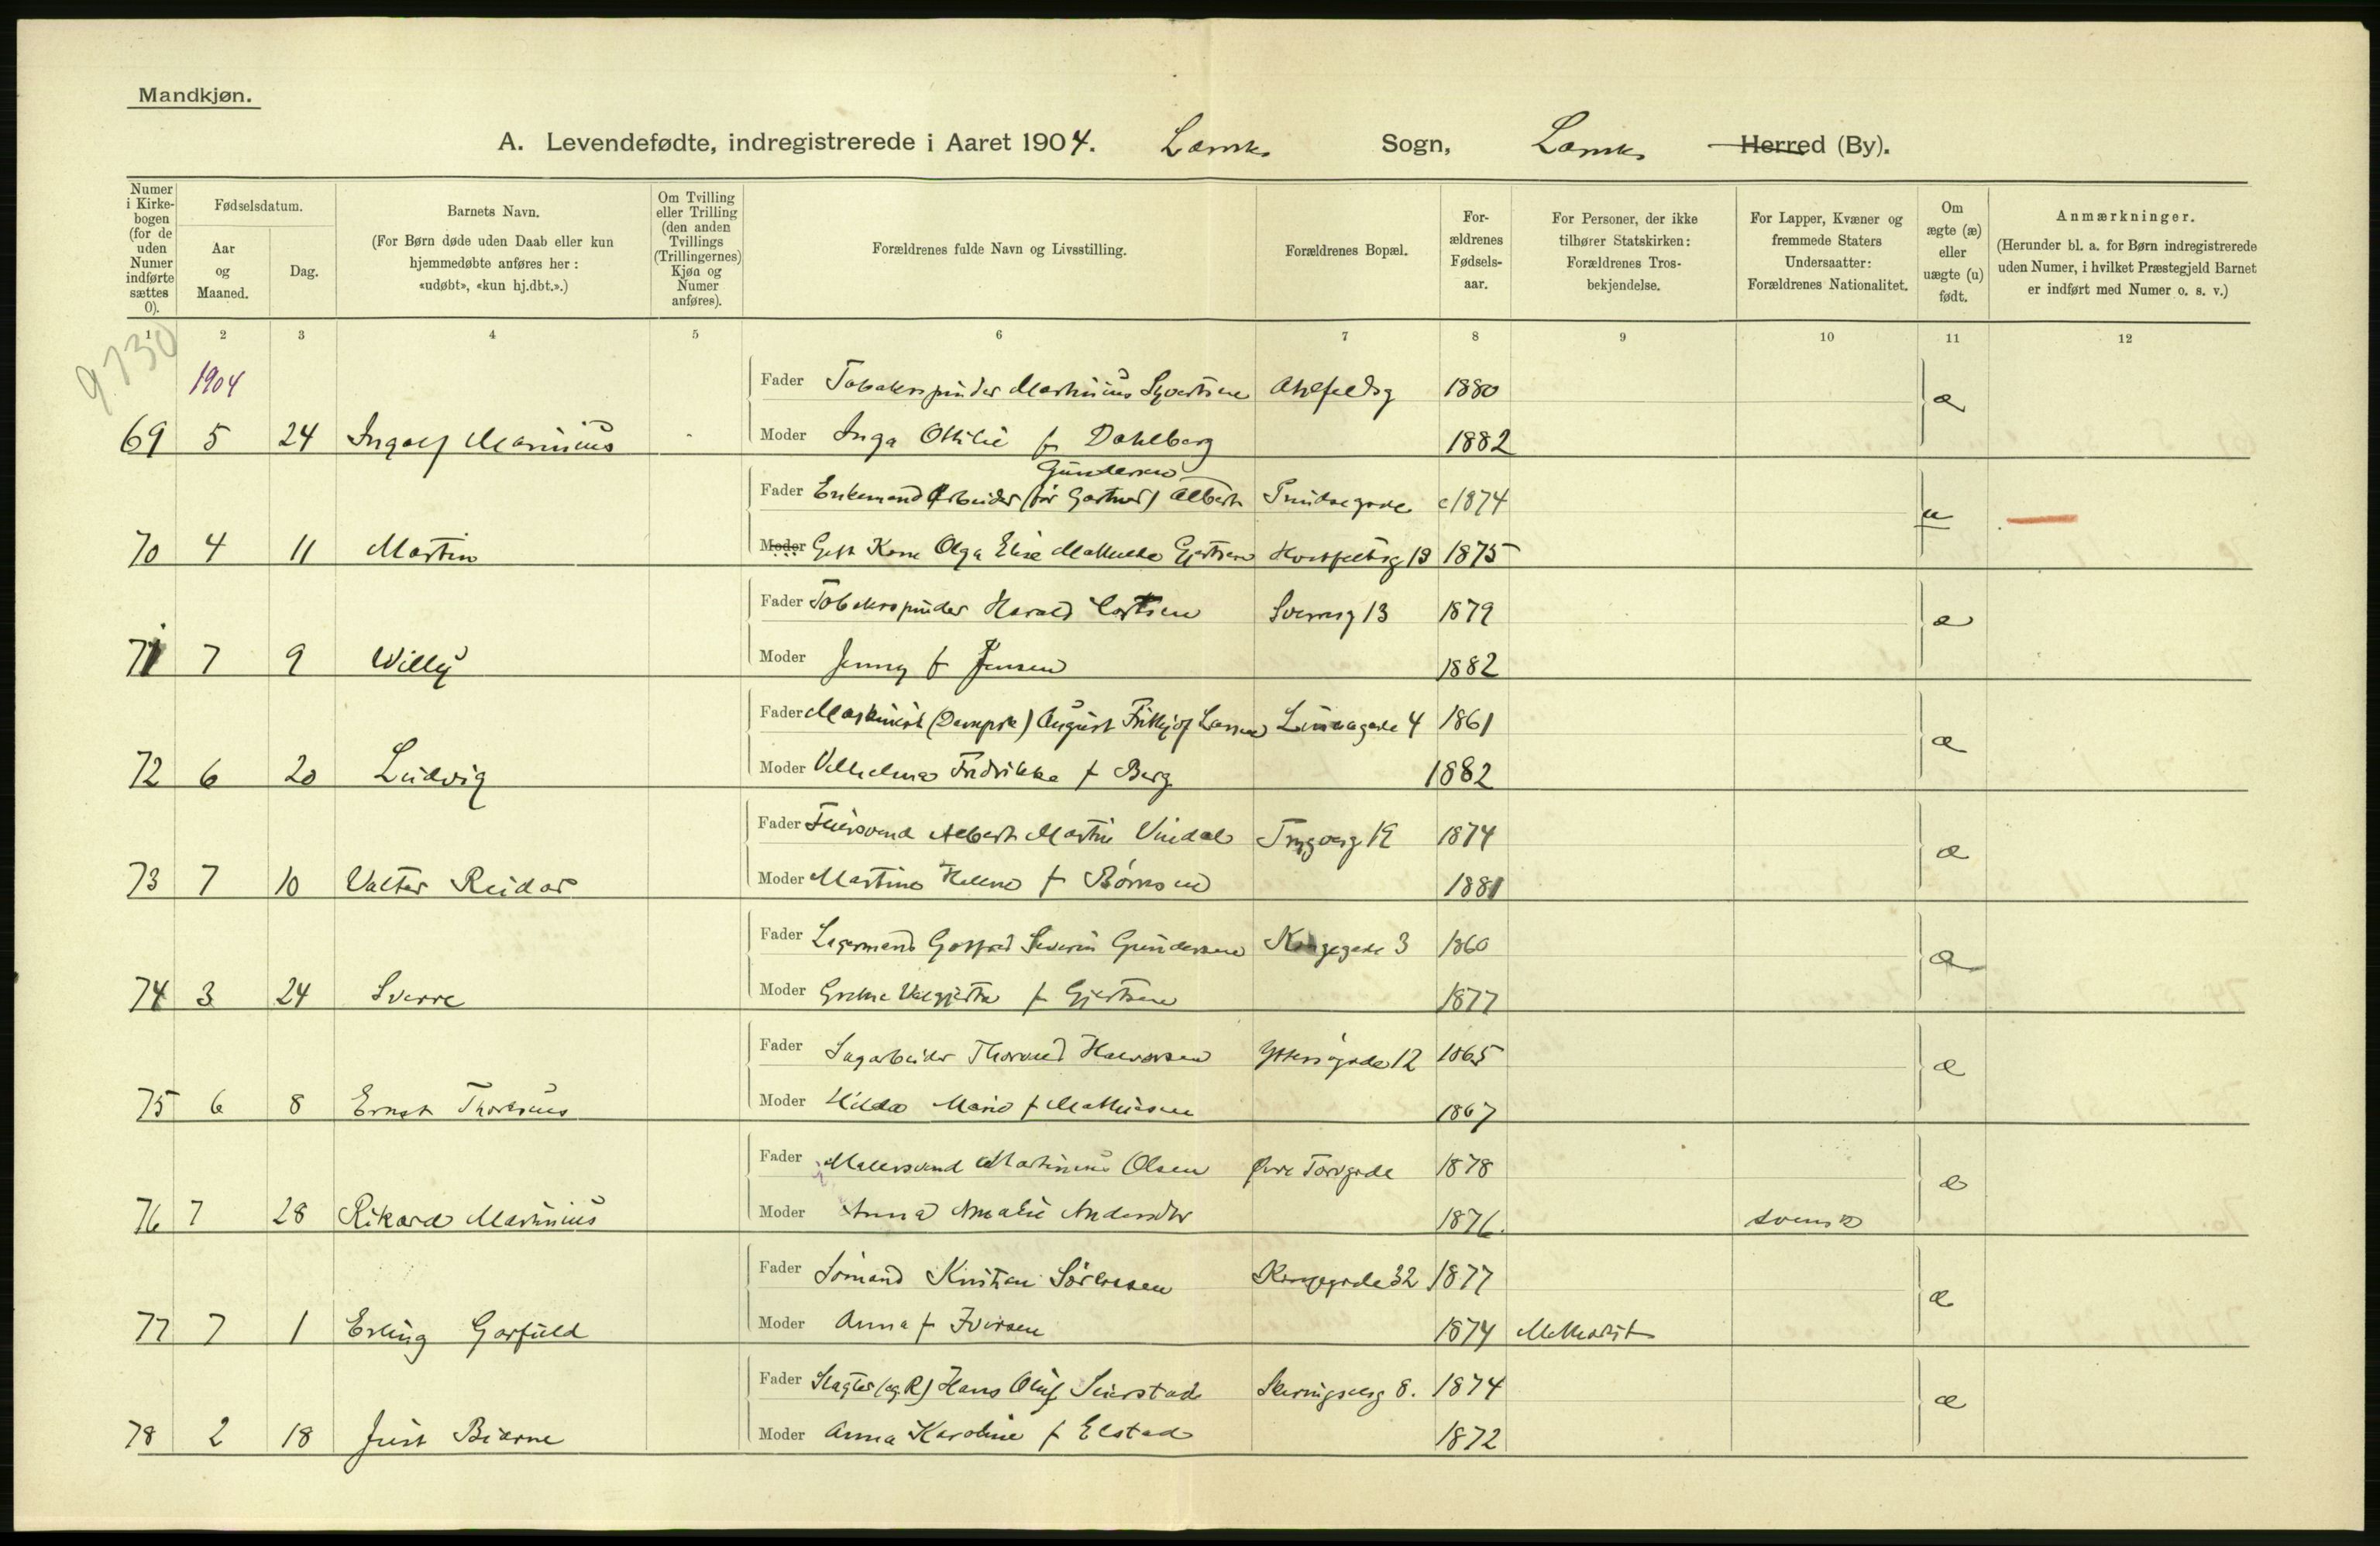 Mandkjøn.
A. Levendefødte, indregistrerede i Aaret 1904. Sogn, Herred (By).
Numer i Kirkebogen (for de uden Numer indførte sættes 0).
Fødselsdatum.
Aar og Maaned.
Dag.
Barnets Navn.
(For Børn døde uden Daab eller kun hjemmedøbte anføres her: «udøbt», «kun hj.dbt.».)
Om Tvilling eller Trilling (den anden Tvillings (Trillingernes) Kjøn og Numer anføres).
Forældrenes fulde Navn og Livsstilling.
Forældrenes Bopæl.
Forældrenes Fødselsaar.
For Personer, der ikke tilhører Statskirken: Forældrenes Trosbekjendelse.
For Lapper, Kvæner og fremmede Staters Undersaatter: Forældrenes Nationalitet.
Om ægte (æ) eller uægte (u) født.
Anmærkninger.
(Herunder bl. a. for Børn indregistrerede uden Numer, i hvilket Præstegjeld Barnet er indført med Numer o. s. v.)
1 2 3 4 5 6 7 8 9 10 11 12
9730
1904
Fader Tobakspinder Martinius Syvertsen 1880 æ
69 5 24 Ingolf Marinius Moder Inga Ottilie f Dahlberg 1882
Gundersen
Fader Enkemand Arbeider (før Gartner) Albert 1874 u
70 4 11 Martin Moder Gift Kone Olga Elise Mathilde Gjertsen 1875
Fader Tobakspinder Harald 13 1879 æ
71 7 9 Willy Moder Jenny f Jensen 1882
Fader Maskinist (Dampsk) August Frithjof Larsen 4 1861 æ
72 6 20 Ludvig Moder Vilhelmine Fredrikke f Berg 1882
Fader Albert Martin Vindal Trygvesg 19 1874 æ
73 7 10 Valter Reidar Moder Martine Helene f 1881
Fader Lagermand Severin Gundersen Kongegade 3 1860 æ
74 3 24 Sverre Moder f Gjertsen 1877
Fader Sagarbeider Halvorsen 12 1865 æ
75 6 8 Ernst Moder Hilda Marie f Mathisen 1867
Fader Malersvend Martinius Olsen Øvre Torvgade 1878 æ
76 7 28 Rikard Martinius Moder Anna Amalie 1876. svensk
Fader Sømand Kristian Sørensen Kongegade 32 1877 æ
77 7 1 Erling Garfield Moder Anna f Iversen 1874 Methodist
Fader Slagter (eg. R) Hans Oluf Seierstad 8. 1874 æ
78 2 18 Just Bjarne Moder Anna Karoline f Elstad 1872